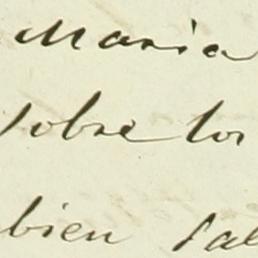 Maria
sobre los
bien sal